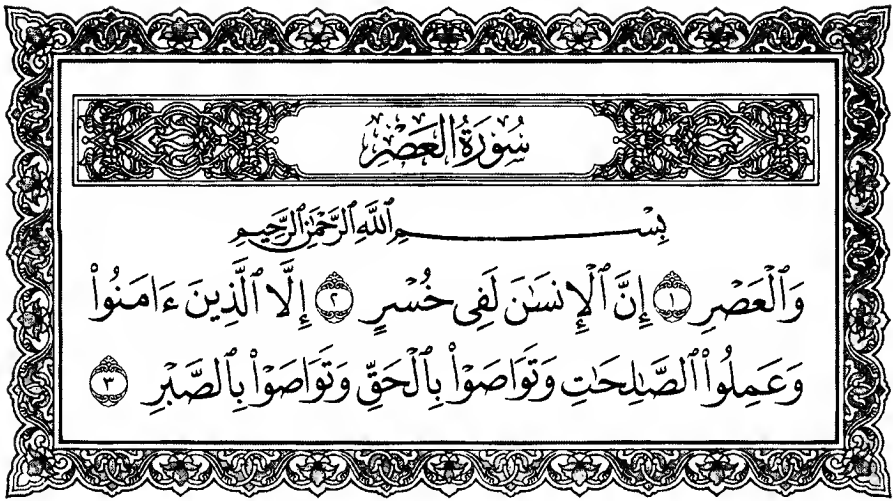 سُورَةُ الْعَصْرِ
بِسْمِ ٱللَّهِ ٱلرَّحْمَٰنِ ٱلرَّحِيمِ
وَٱلْعَصْرِ ١ إِنَّ ٱلْإِنسَٰنَ لَفِى خُسْرٍ ٢ إِلَّا ٱلَّذِينَ ءَامَنُوا۟
وَعَمِلُوا۟ ٱلصَّٰلِحَٰتِ وَتَوَاصَوْا۟ بِٱلْحَقِّ وَتَوَاصَوْا۟ بِٱلصَّبْرِ ٣